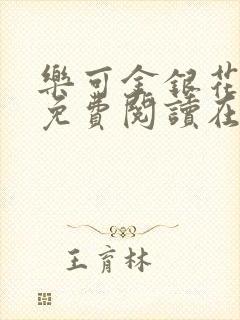 樂可金銀花
免費閱讀在
王育林